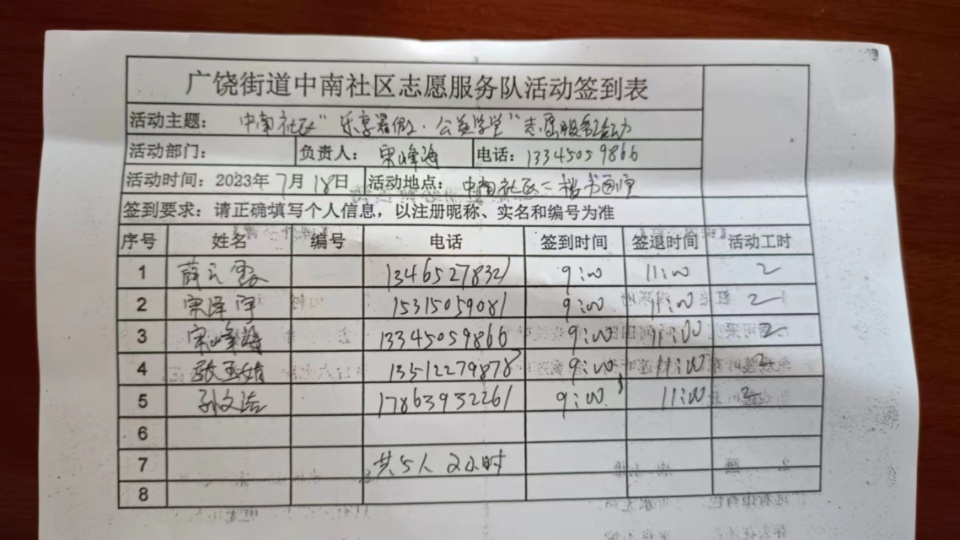 广饶街道中南社区志愿服务队活动签到表
活动主题: 中南社区"乐享暑假·公益学堂"志愿服务活动
活动部门: 负责人: 宋峰海 电话: 13345059866
活动时间: 2023年7月18日 活动地点: 中南社区二楼书画室
签到要求: 请正确填写个人信息，以注册昵称、实名和编号为准
序号 姓名 编号 电话 签到时间 签退时间 活动工时
1 薛云霞 13465278321 9:00 11:00 2
2 宋泽宇 15315059081 9:00 11:00 2
3 宋峰海 13345059866 9:00 11:00 2
4 张玉娟 13512279878 9:00 11:00 2
5 孙文洁 17863932261 9:00 11:00 2
6
7 共5人 2小时
8